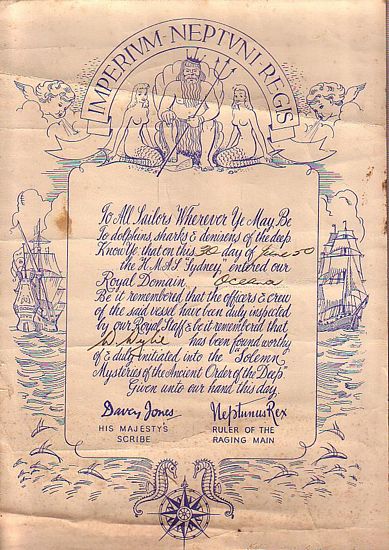 IMPERIVM·NEPTVNI·REGIS
To All Sailors Wherever Ye May Be
To dolphins, sharks & denizens of the deep
Know Ye that on this 30 day of June 50
the H.M.A.S "Sydney, entered our
Royal Domain, Oceana
Be it remembered, that the officers & crew
of the said vessel have been duly inspected
by our Royal Staff & be it remembered that
has been found worthy
of & duly initiated into the "Solemn
Mysteries of the Ancient Order of the Deep"
Given unto our hand this day.
Davey Jones Neptunus Rex
HIS MAJESTYS RULER OF THE
SCRIBE RAGING MAIN